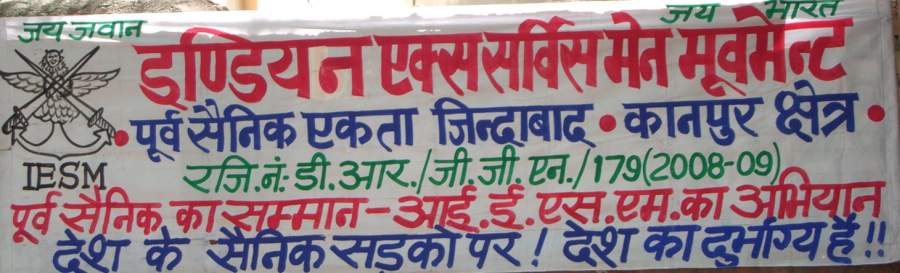 जय जवान
जय भारत
इण्डियन एक्ससर्विसमेन मूवमेन्ट
• पूर्व सैनिक एकता जिन्दाबाद • कानपुर क्षेत्र •
IESM
रजि.नं: डी.आर./जी.जी.एन./179(2008-09)
पूर्व सैनिक का सम्मान - आई.ई.एस.एम.का अभियान
देश के सैनिक सड़को पर! देश का दुर्भाग्य है!!